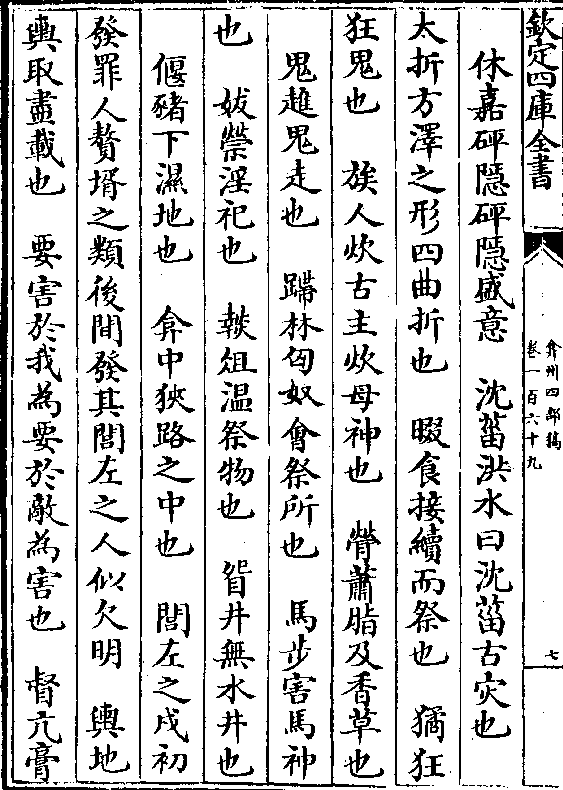 欽定四庫全書
弇州四部稿
卷一百六十九
七
休嘉砰隱砰隱盛意　沈菑洪水曰沈菑古灾也
太折方澤之形四曲折也　畷食接續而祭也　獝狂
狂鬼也　族人炊古主炊母神也　膋蕭脂及香草也
鬼䧿鬼走也　蹛林匈奴會祭所也　馬步害馬神
也　妭禜淫祀也　䅥俎温祭物也　眢井無水井也
偃豬下濕地也　弇中狹路之中也　閭左之戍初
發罪人贅壻之類後間發其閭左之人似欠明　輿地
輿取盡載也　要害於我為要於敵為害也　督亢膏